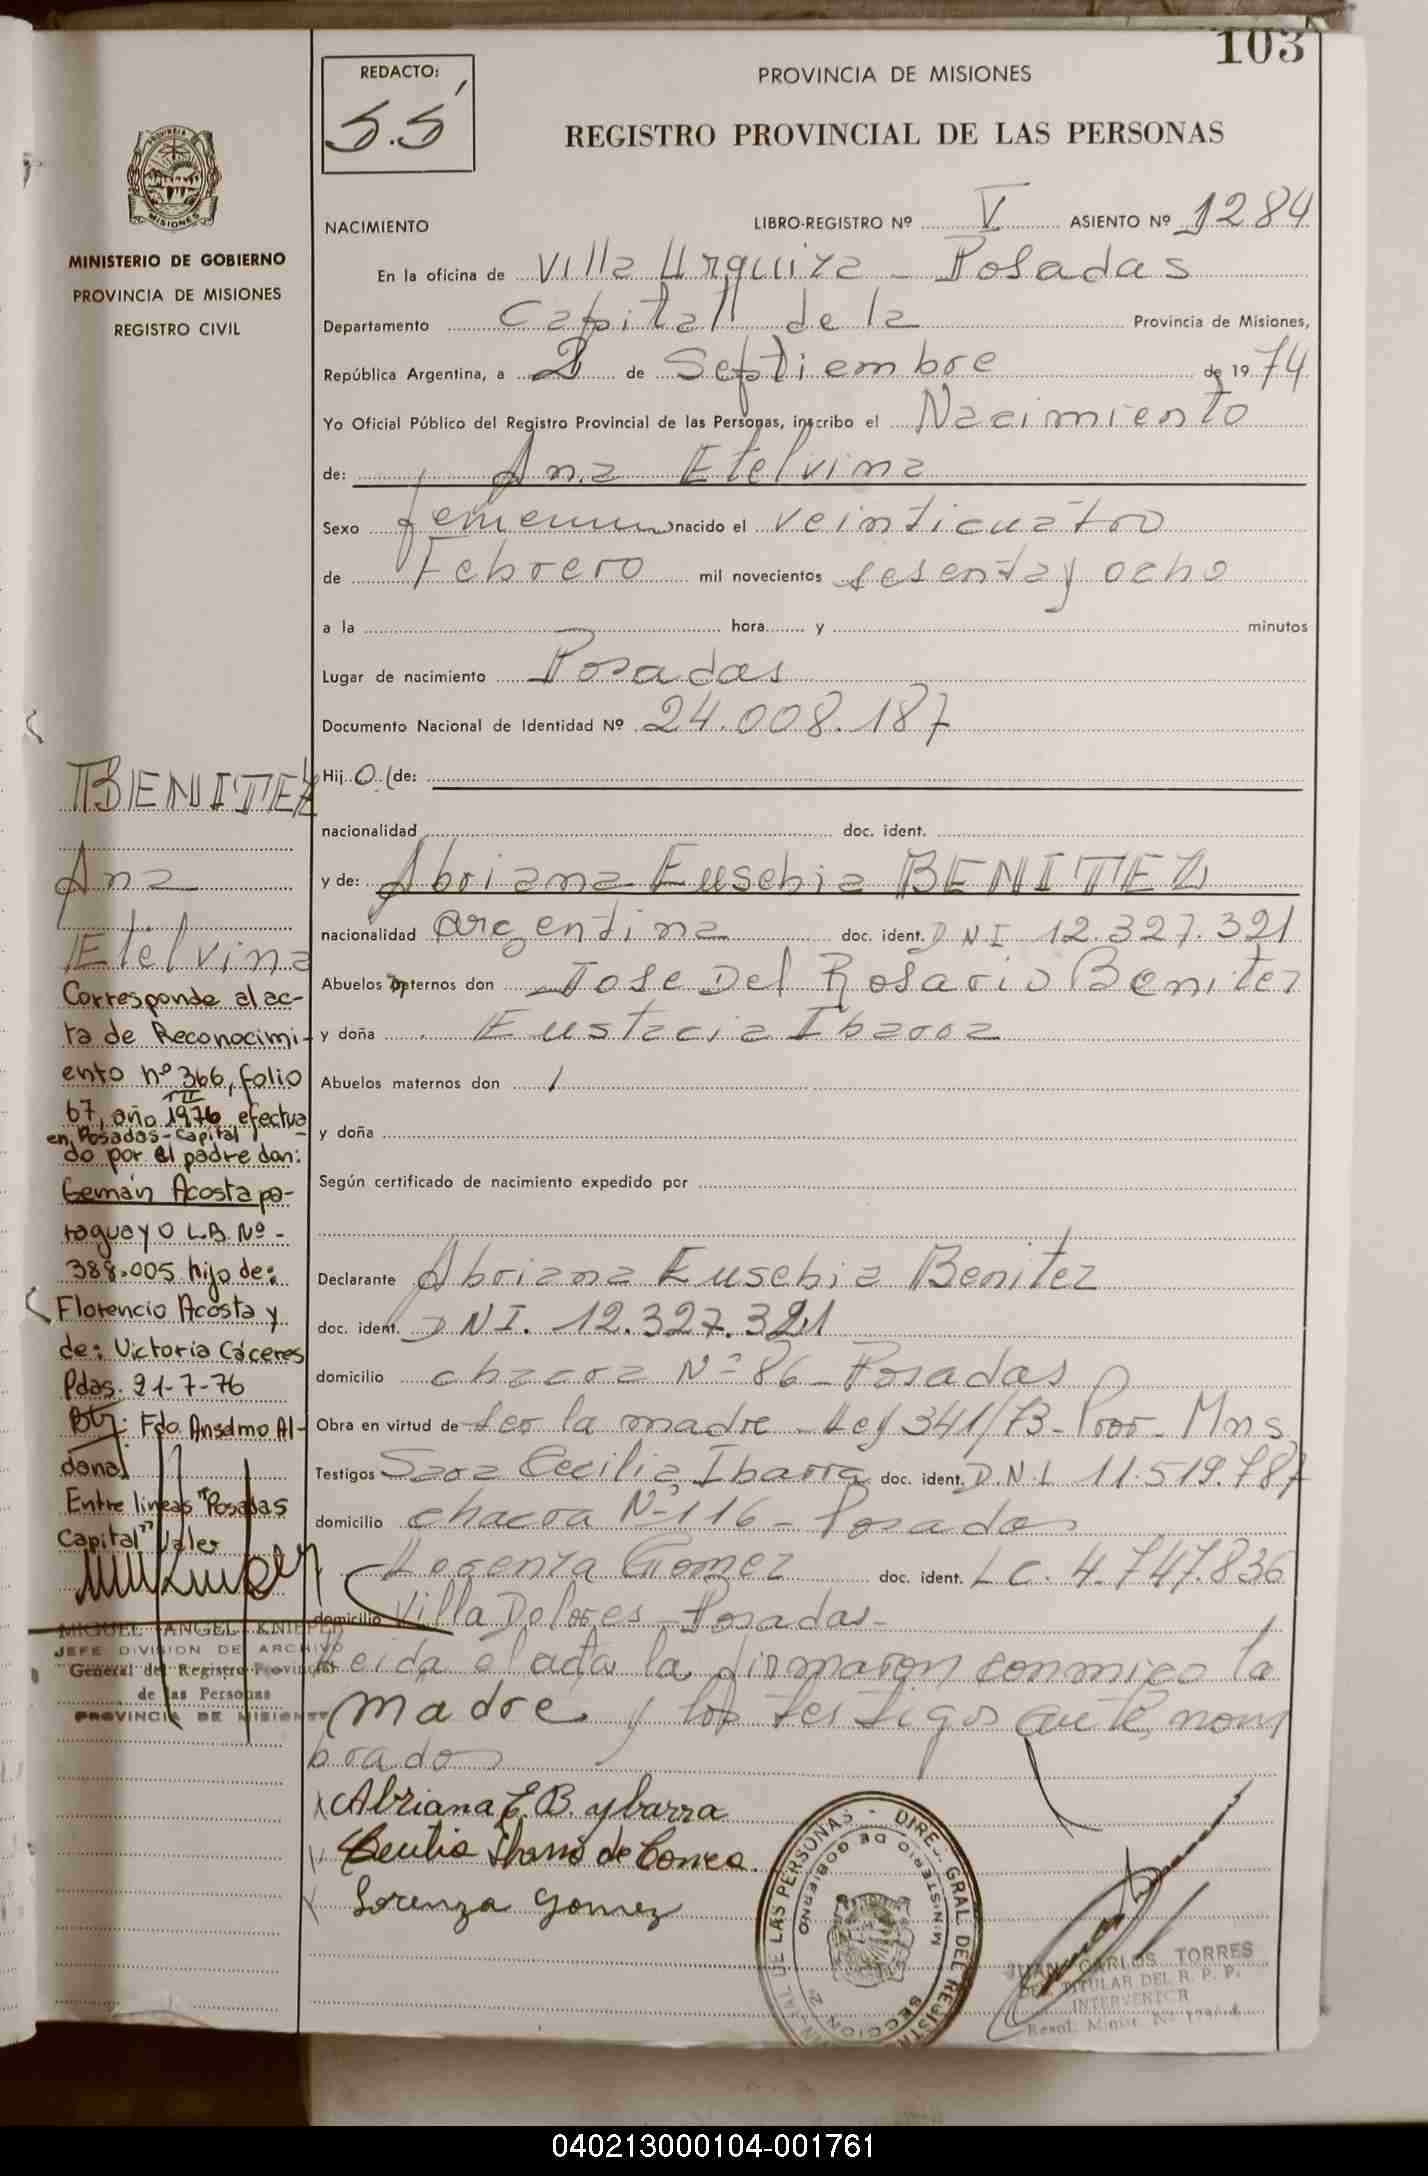 103
REDACTO:
S.S
PROVINCIA DE MISIONES
REGISTRO PROVINCIAL DE LAS PERSONAS
MISIONES
MINISTERIO DE GOBIERNO
PROVINCIA DE MISIONES
REGISTRO CIVIL
NACIMIENTO LIBRO-REGISTRO Nº V ASIENTO Nº 1284
En la oficina de Villa Urquiza - Posadas
Departamento Capital de la Provincia de Misiones,
República Argentina, a 2 de Septiembre de 1974
Yo Oficial Público del Registro Provincial de las Personas, inscribo el Nacimiento
de: Ana Etelvina
Sexo femenino nacido el veinticuatro
de Febrero mil novecientos sesenta y ocho
a la hora y minutos
Lugar de nacimiento Posadas
Documento Nacional de Identidad Nº 24.008.187
Hij o (de:
nacionalidad doc. ident.
y de: Abriana Eusebia BENITEZ
nacionalidad argentina doc. ident. DNI 12.327.321
Abuelos maternos don Jose Del Rosario Benitez
y doña Eustacia Ibarra
Abuelos maternos don /
y doña
Según certificado de nacimiento expedido por
Declarante Abriana Eusebia Benitez
doc. ident. DNI. 12.327.321
domicilio chacra Nº 86 - Posadas
Obra en virtud de ser la madre - Ley 341/73 - Prov - Mns
Testigos Sara Cecilia Ibarra doc. ident. D.N.I. 11.519.787
domicilio chacra Nº 116 - Posadas
Lorenza Gomez doc. ident. LC. 4.747.836
domicilio Villa Dolores - Posadas -
Leida el acta la firmaron conmigo la
madre y los testigos ante nom
brados
X Abriana E. B. ybarra
Cecilia Ibarra de Correa.
X Lorenza Gomez
BENITEZ
Ana
Etelvina
Corresponde al ac-
ta de Reconocimi-
ento nº 366, folio
67, TII año 1976 efectua
en Posadas - Capital
do por el padre don:
Gemán Acosta pa-
raguayo L.B. Nº -
388.005 hijo de:
Florencio Acosta y
de: Victoria Cáceres
Pdas. 21-7-76
Btz: Fdo Anselmo Al-
dana
Entre lineas "Posadas
Capital" Vale
MIGUEL ANGEL KNIEPER
JEFE DIVISION DE ARCHIVO
General del Registro Provincial
de las Personas
PROVINCIA DE MISIONES
DIREC. GRAL. DEL REGISTRO
DE LAS PERSONAS
MINISTERIO DE GOBIERNO
SECCION 2ª
JUAN CARLOS TORRES
TITULAR DEL R. P. P.
INTERVENTOR
Resol. Minist. Nº
040213000104-001761